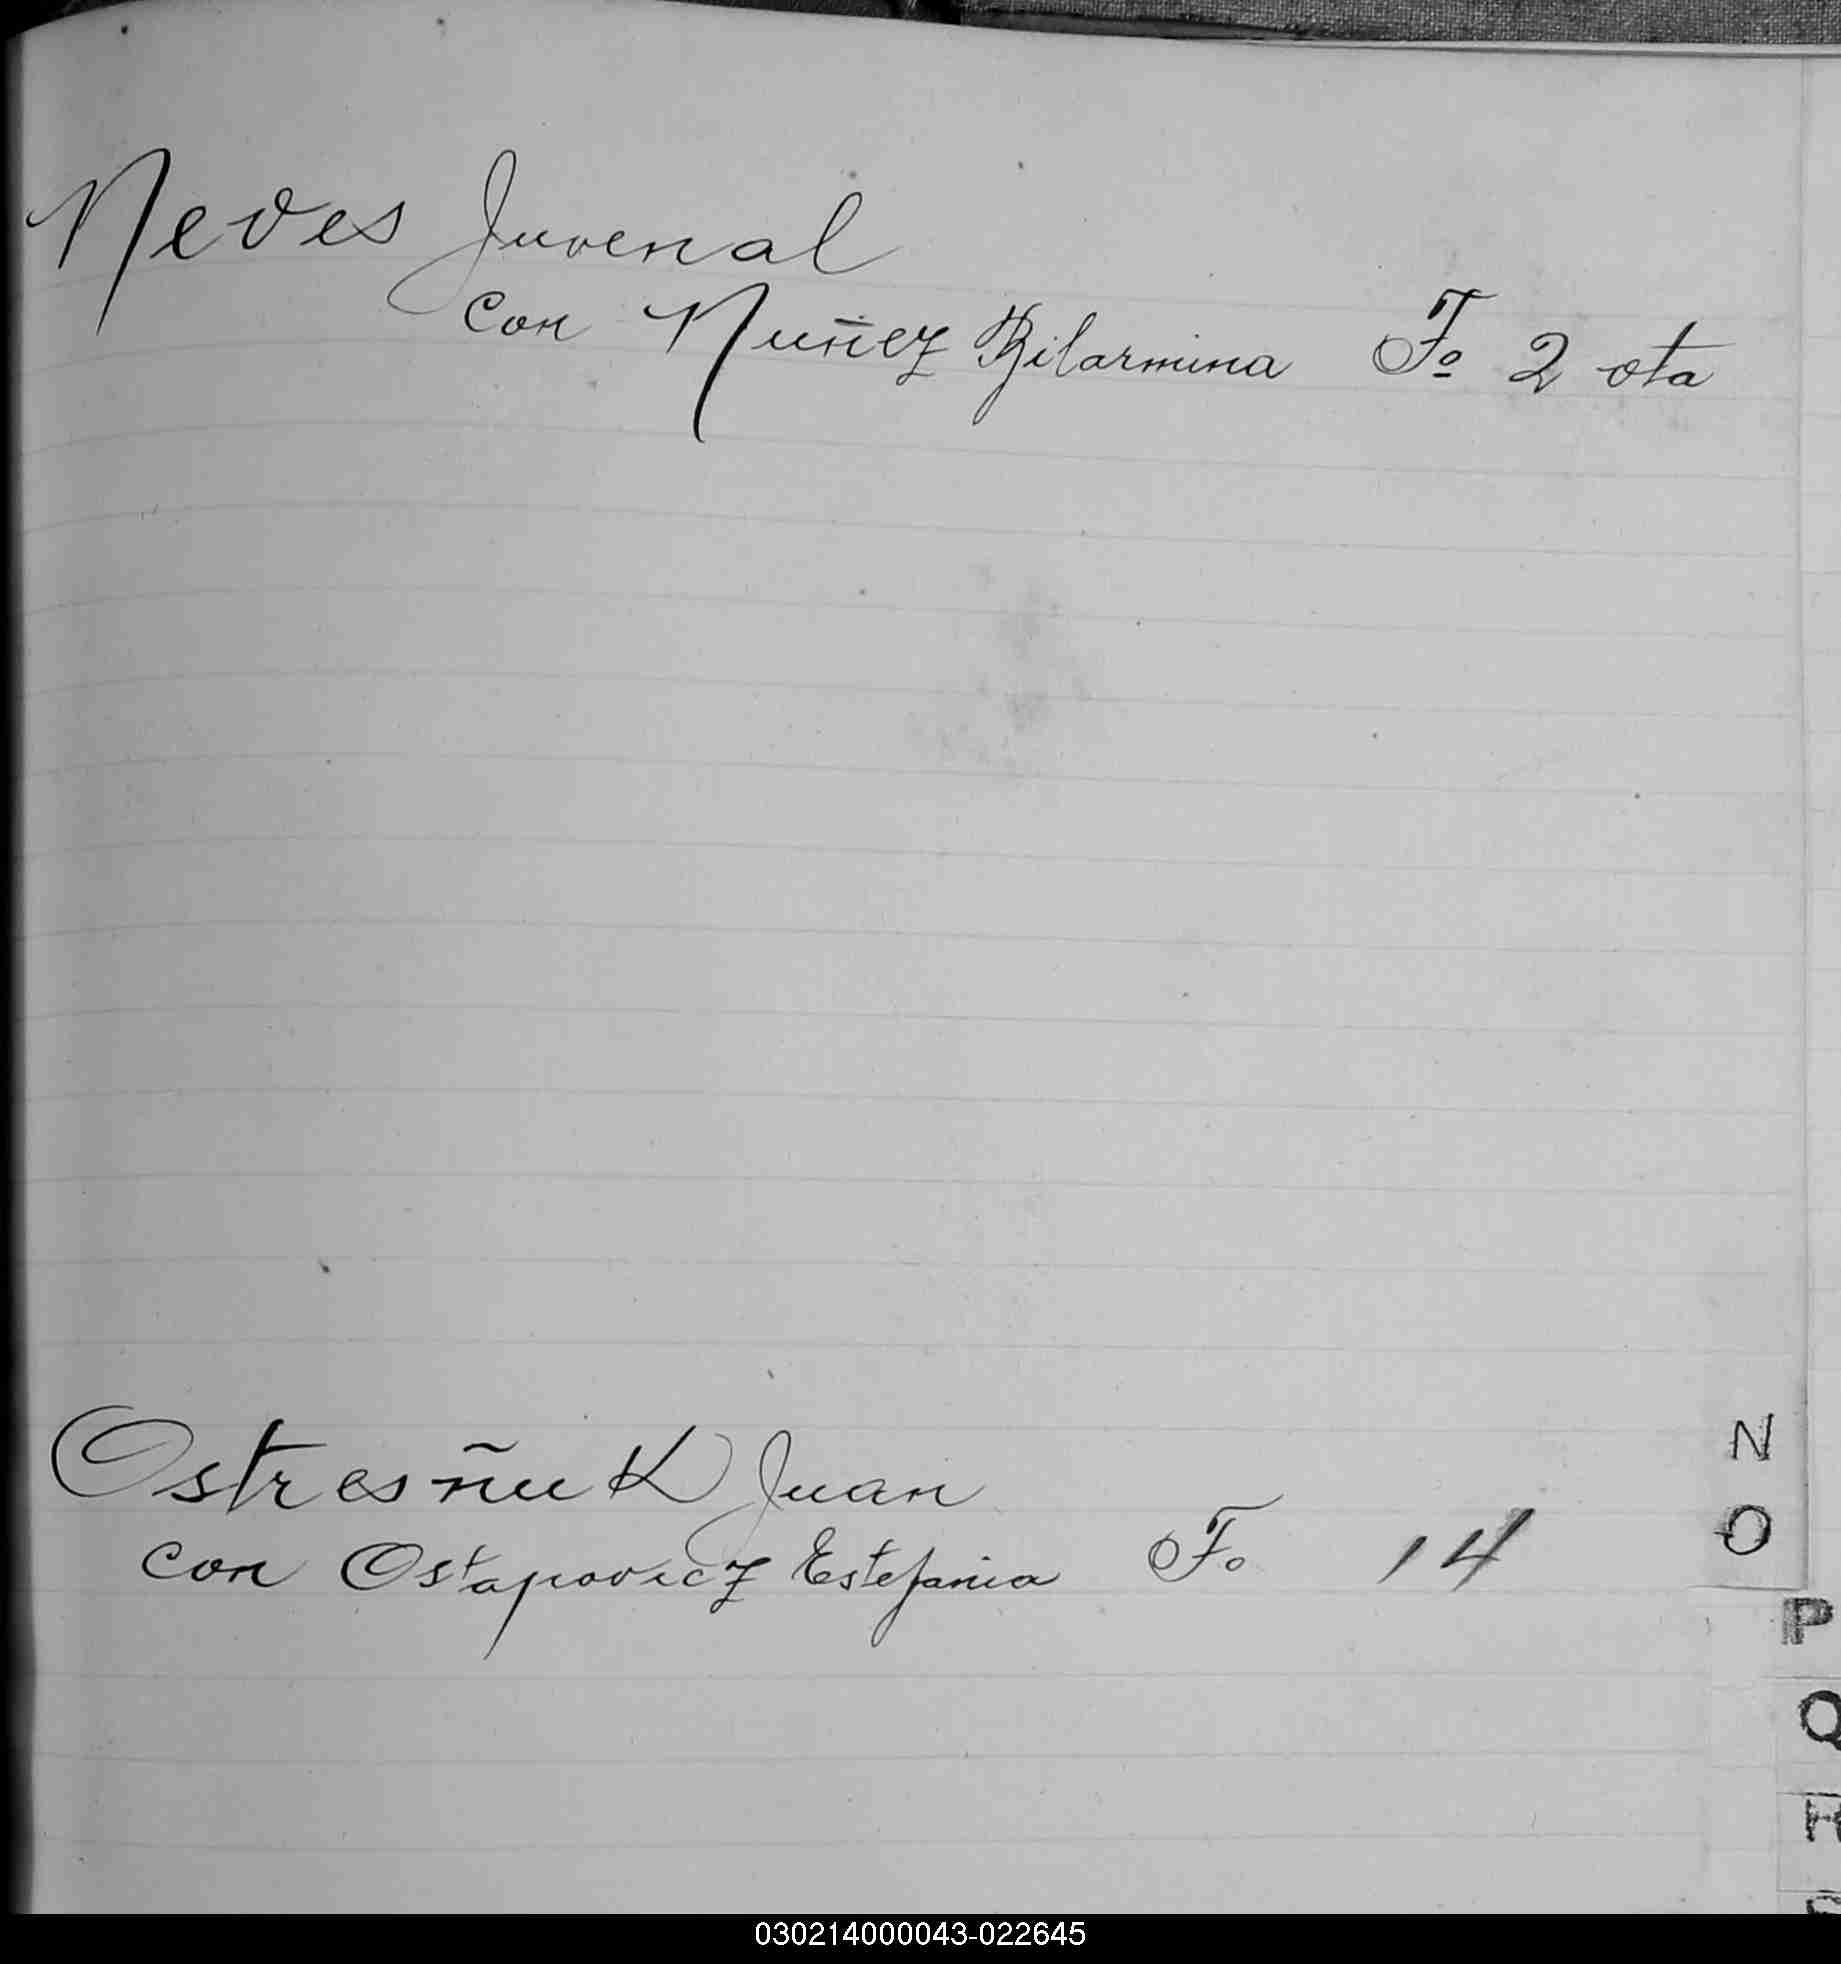 Neves Juvenal
con Nuñez Bilarmina Fo 2 ota
Ostresñuk Juan
con Ostapovicz Estefania Fo 14
N
O
P
Q
030214000043-022645